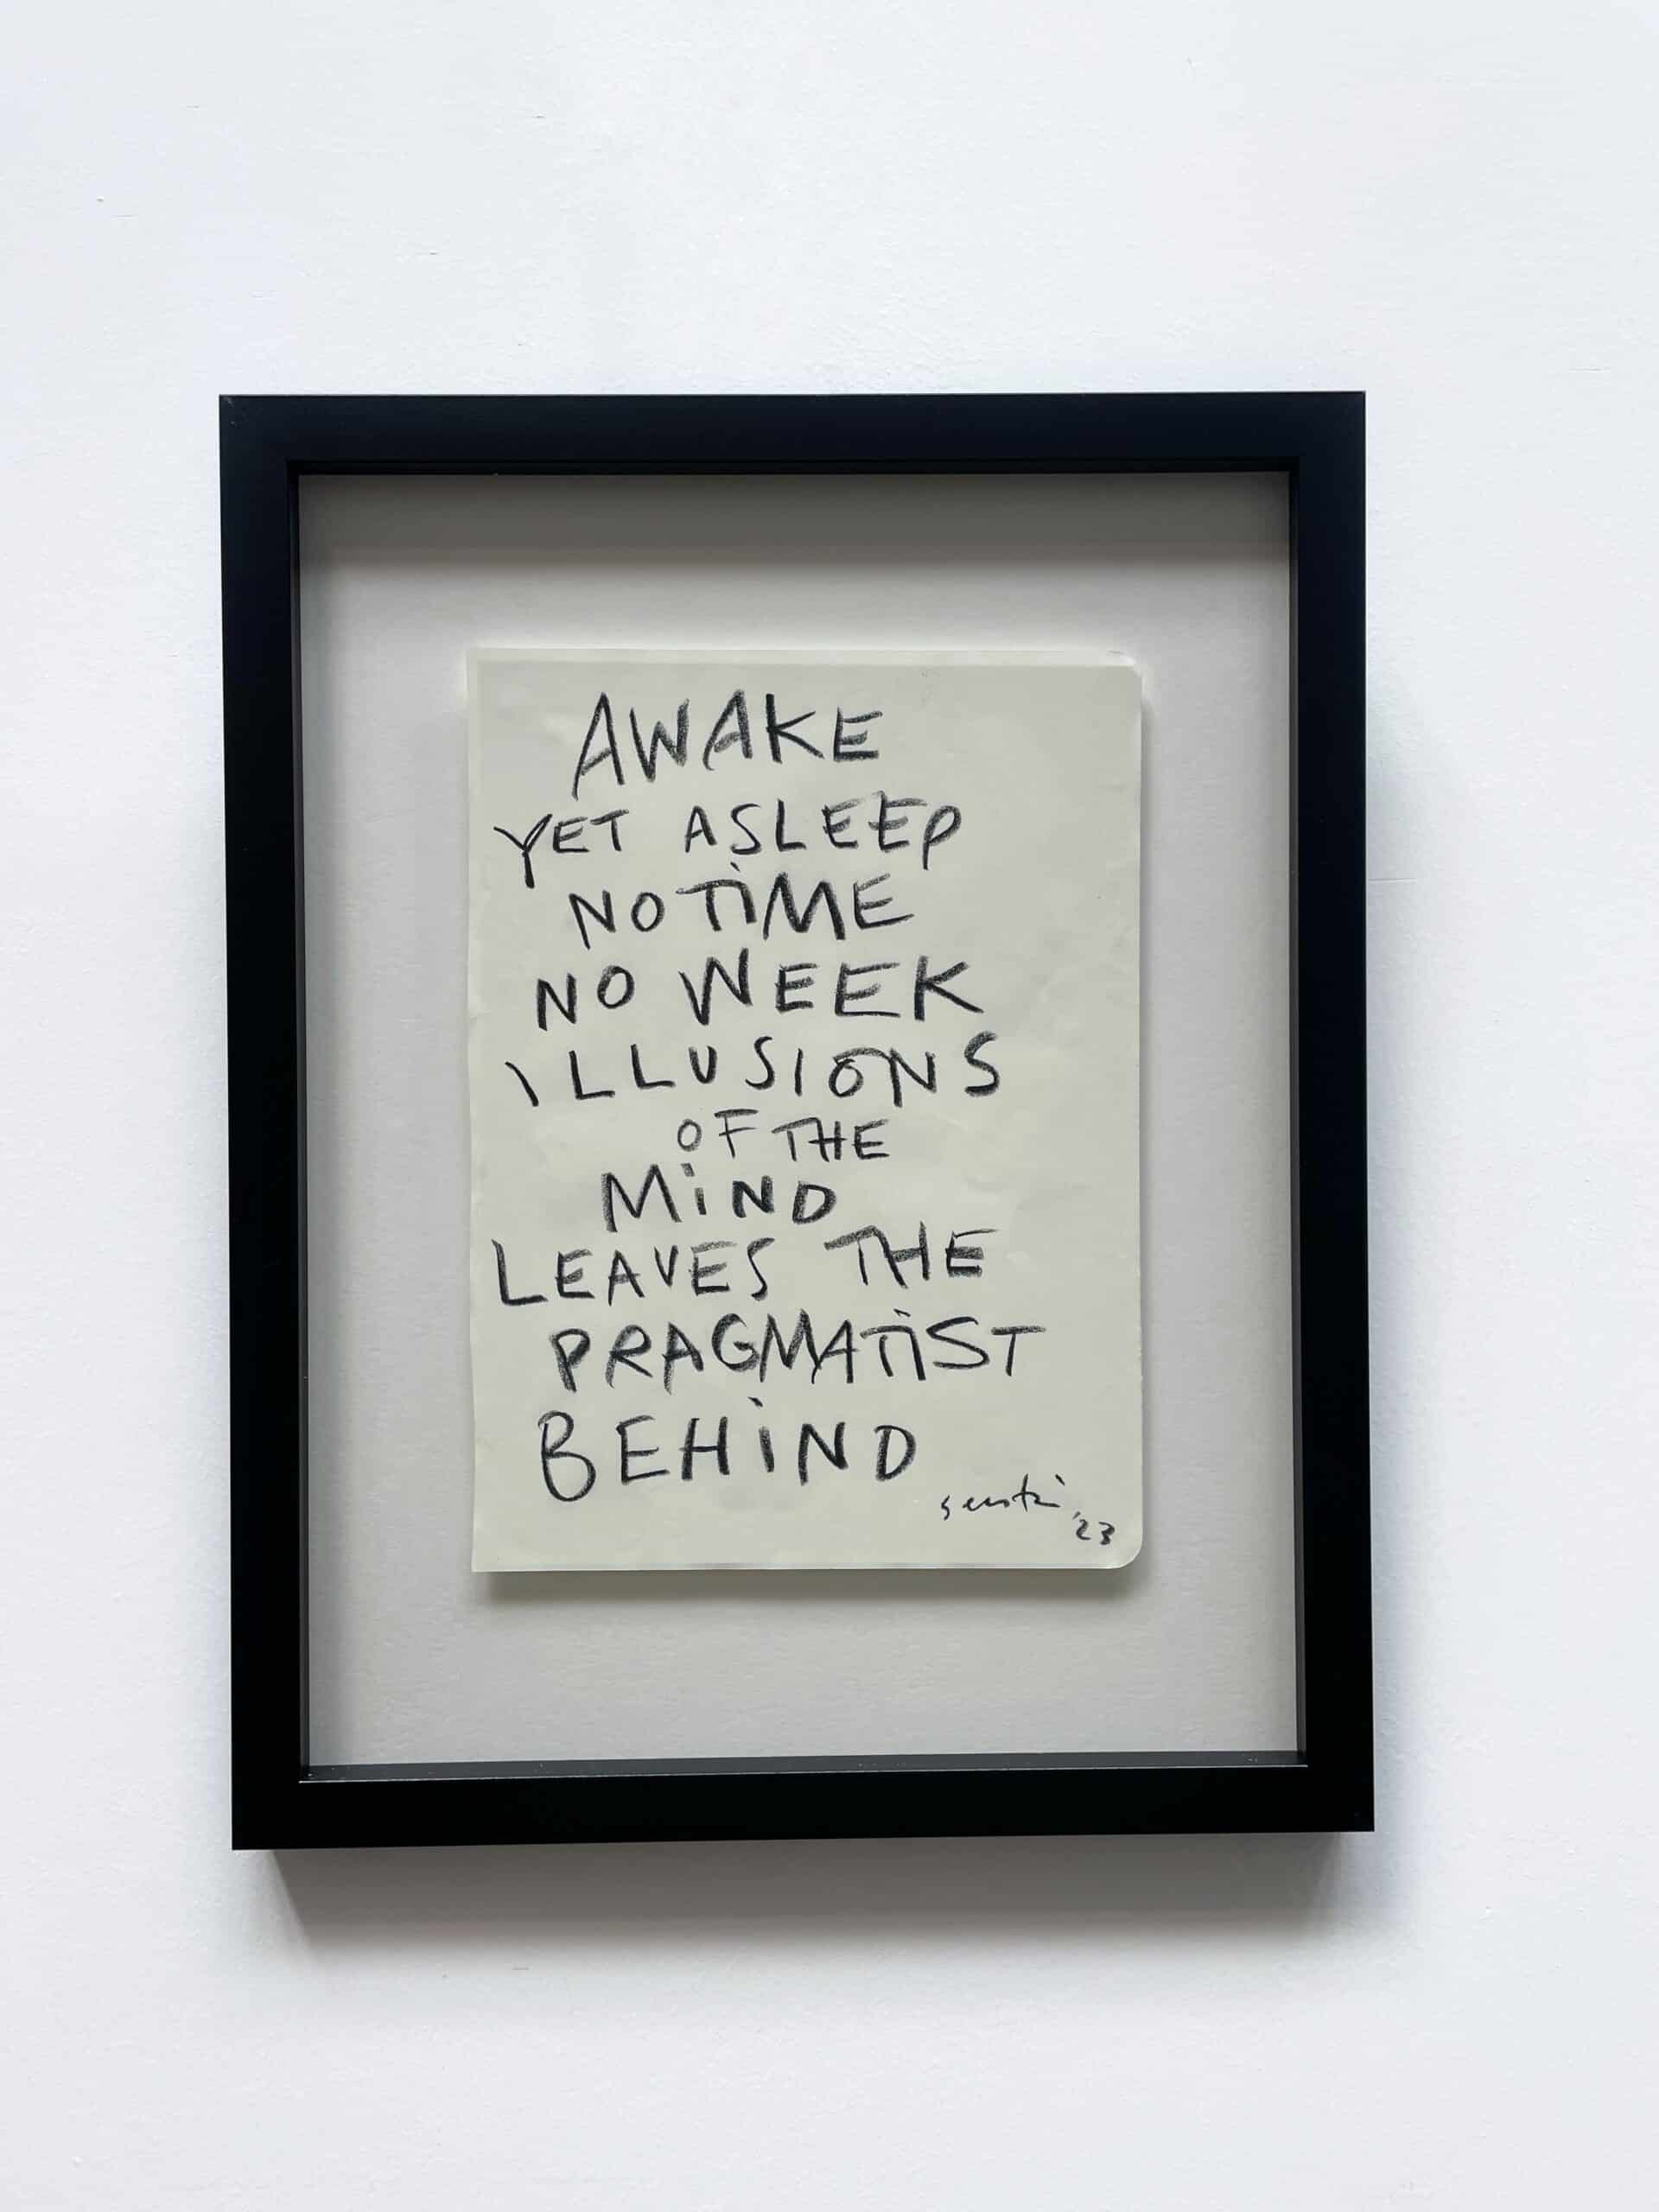 AWAKE
YET ASLEEP
NO TIME
NO WEEK
ILLUSIONS
OF THE
MIND
LEAVES THE
PRAGMATIST
BEHIND
'23